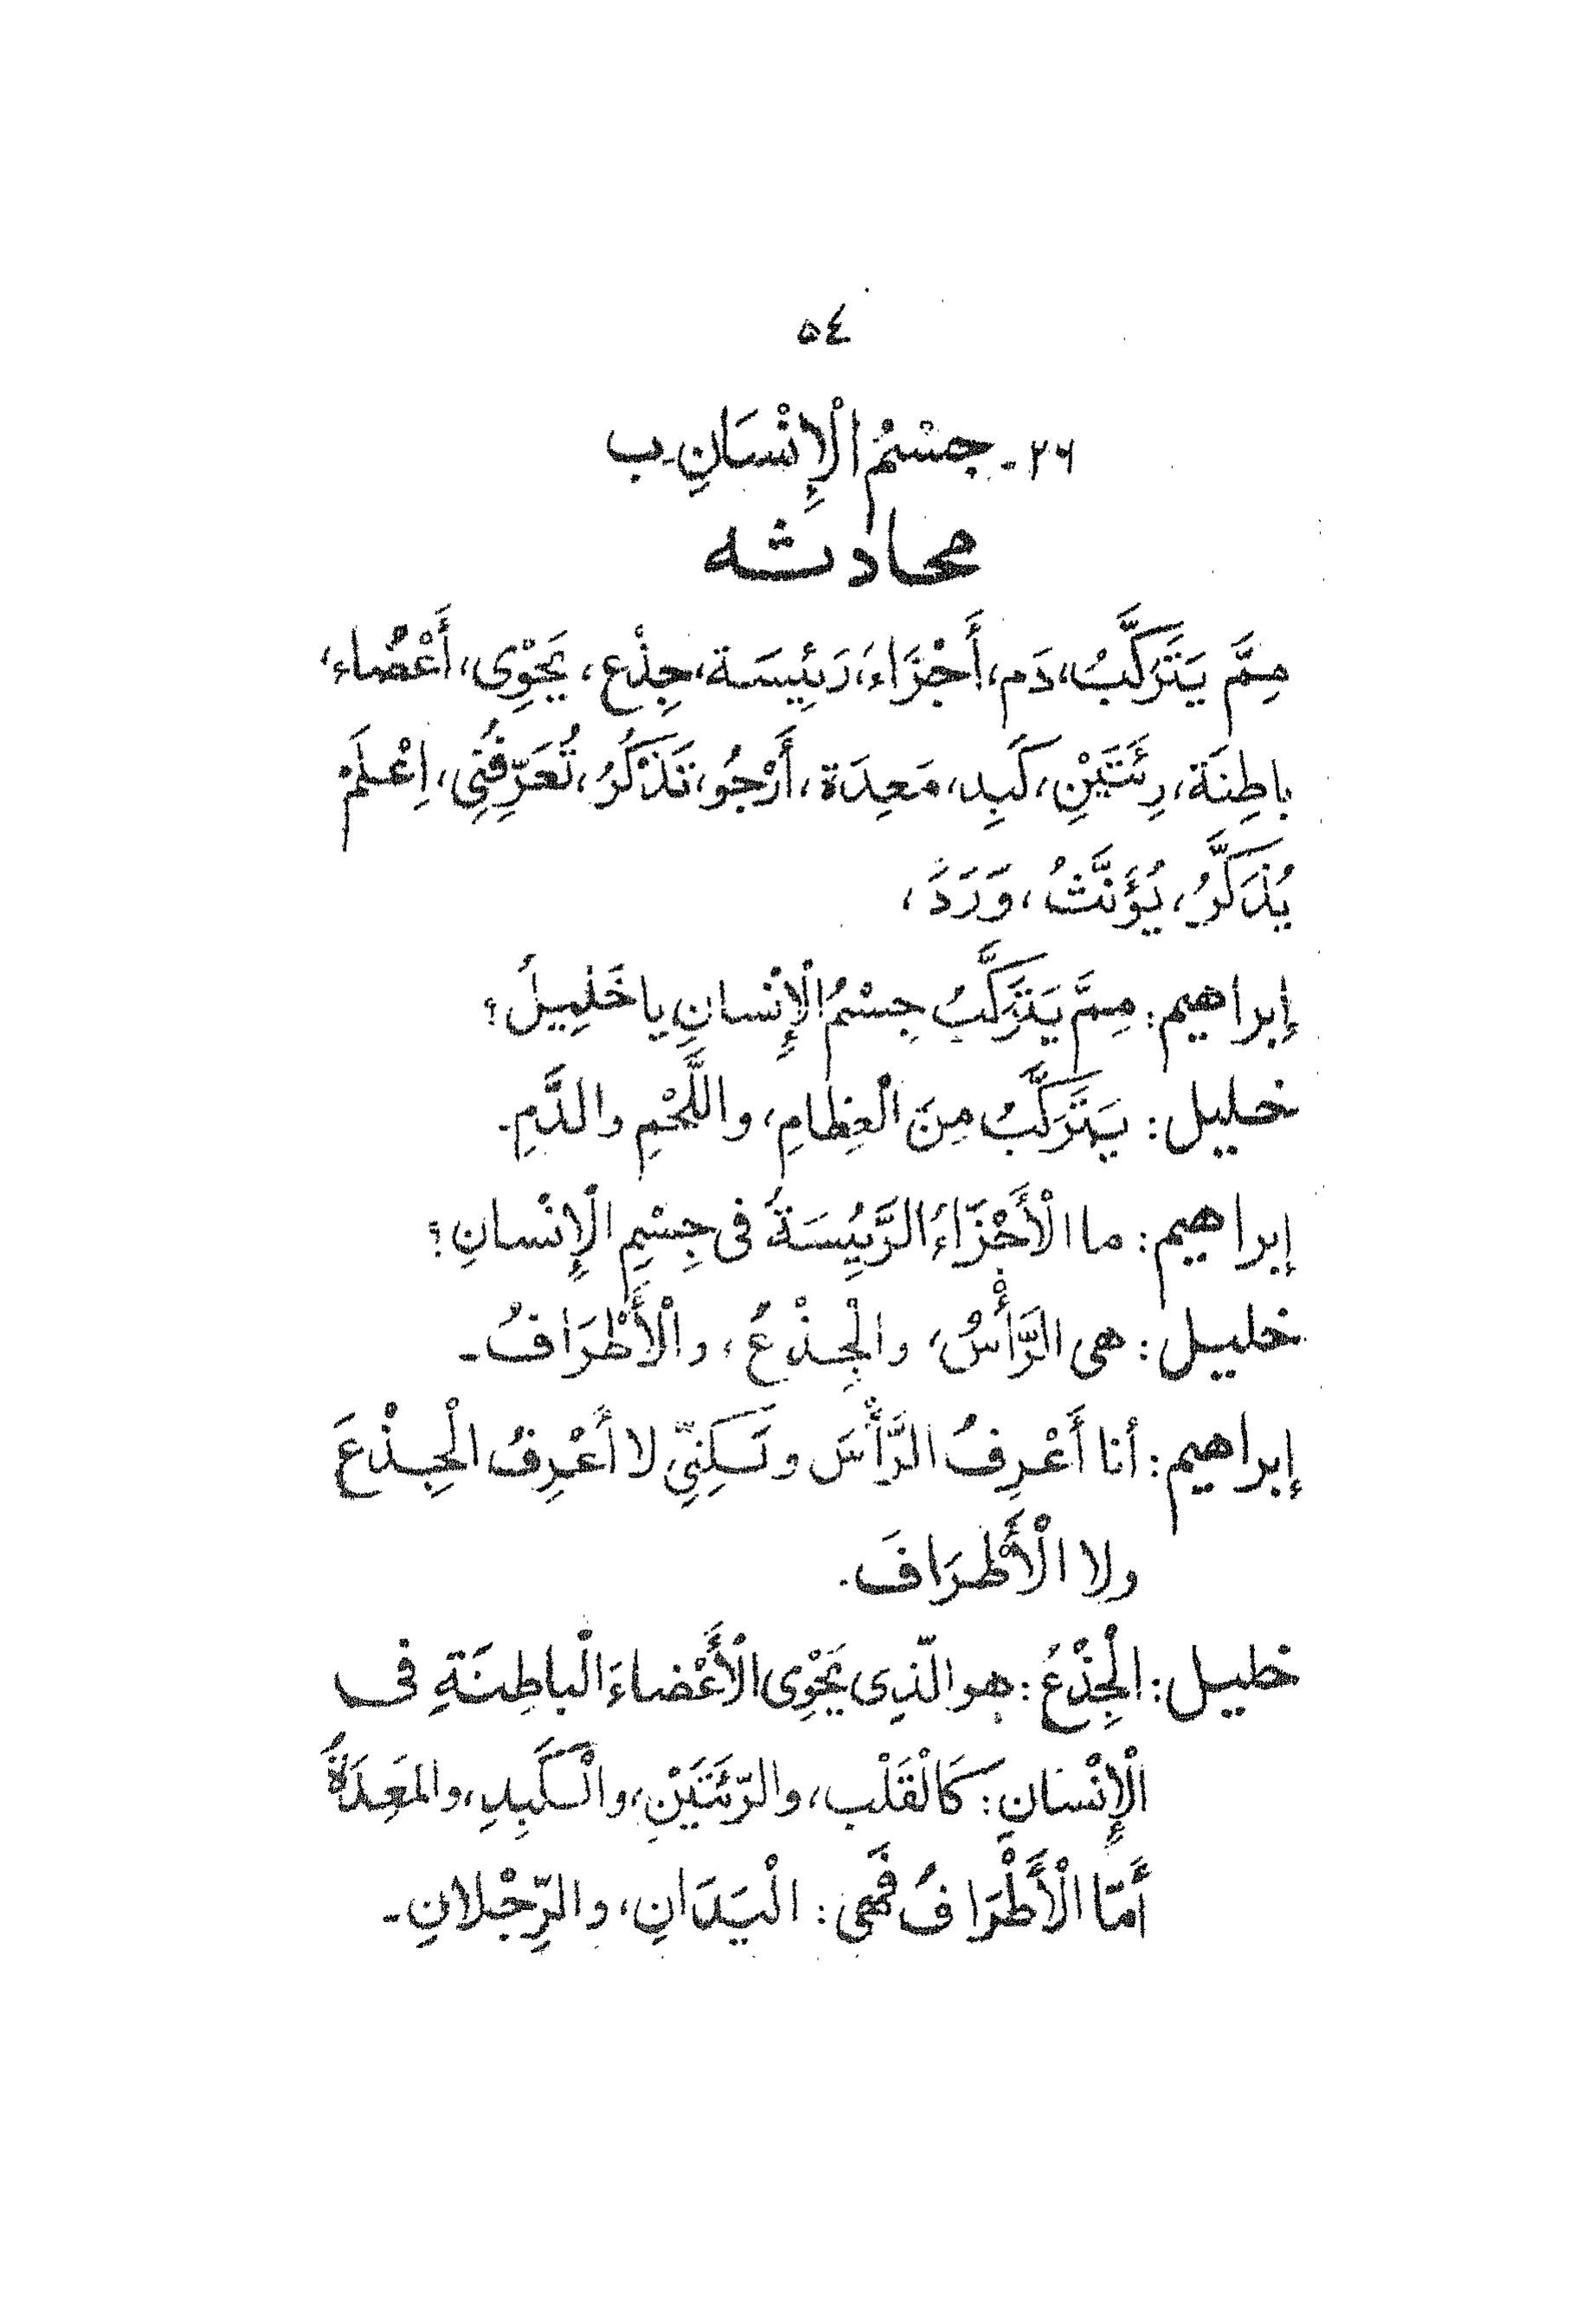 ٥٤
٢٦- جِسْمُ الْإِنْسَانِ - ب
محادثه
مِمَّ يَتَرَكَّبُ، دَم، أَجْزَاءَ، رَئِيسَة، جِذْع، يَحْوِى، أَعْضاء،
باطِنَة، رِئَتَيْنِ، كَبِد، مَعِدَة، أَرْجُو، تَذْكُرُ، تُعَرِّفُنِى، اِعْلَمْ
يُذَكَّرُ، يُؤَنَّثُ، وَرَدَ،
إبراهيم: مِمَّ يَتَرَكَّبُ جِسْمُ الْإِنْسانِ يا خَلِيلُ؟
خليل: يَتَرَكَّبُ مِنَ الْعِظامِ، واللَّحْمِ والدَّمِ-
إبراهيم: ما الْأَجْزَاءُ الرَّئِيسَةُ فى جِسْمِ الْإِنْسانِ؟
خليل: هى الرَّأْسُ، والْجِذْعُ، والْأَطْرَافُ-
إبراهيم: أنا أَعْرِفُ الرَّأْسَ ولَكِنِّى لا أَعْرِفُ الْجِذْعَ
ولا الْأَطْرَافَ.
خليل: الْجِذْعُ: هو الّذِى يَحْوِى الْأَعْضاءَ الْباطِنَةِ فى
الْإِنْسَانِ: كَالْقَلْبِ، والرّئَتَيْنِ، والْكَبِدِ، والمَعِدَةُ
أَمّا الْأَطْرَافُ فَهى: الْيَدَانِ، والرِّجْلانِ-